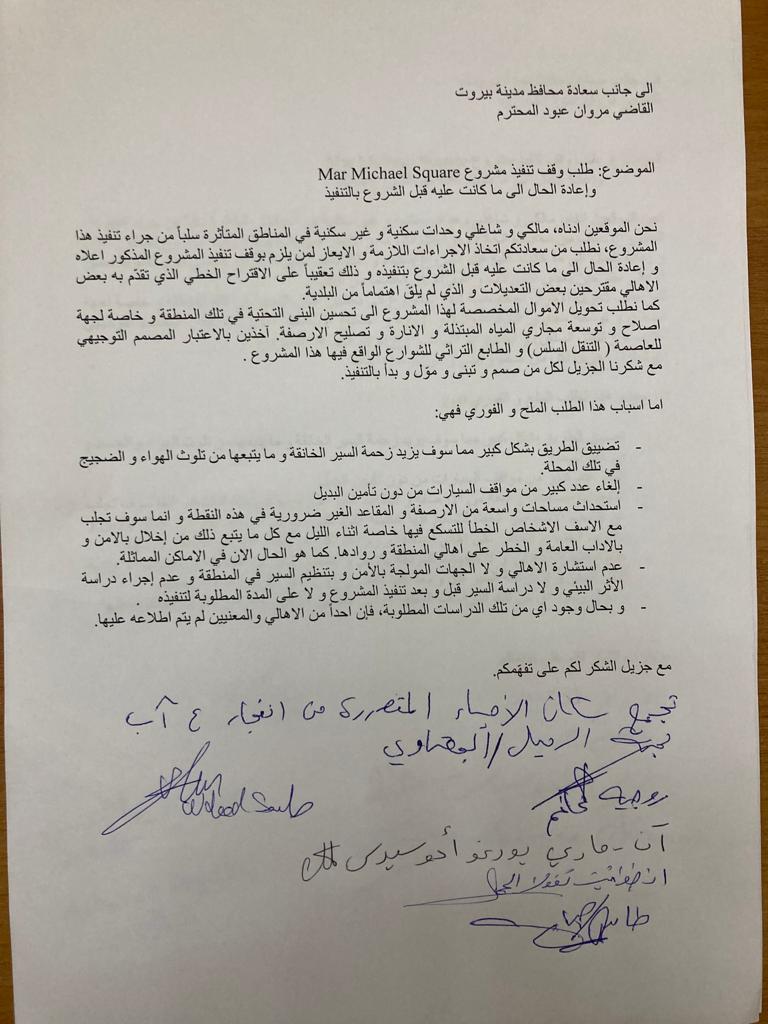 الى جانب سعادة محافظ مدينة بيروت
القاضي مروان عبود المحترم
الموضوع: طلب وقف تنفيذ مشروع Mar Michael Square
وإعادة الحال الى ما كانت عليه قبل الشروع بالتنفيذ
نحن الموقعين ادناه، مالكي و شاغلي وحدات سكنية و غير سكنية في المناطق المتأثرة سلباً من جراء تنفيذ هذا
المشروع، نطلب من سعادتكم اتخاذ الاجراءات اللازمة و الايعاز لمن يلزم بوقف تنفيذ المشروع المذكور اعلاه
و إعادة الحال الى ما كانت عليه قبل الشروع بتنفيذه و ذلك تعقيباً على الاقتراح الخطي الذي تقدّم به بعض
الاهالي مقترحين بعض التعديلات و الذي لم يلقَ اهتماماً من البلدية.
كما نطلب تحويل الاموال المخصصة لهذا المشروع الى تحسين البنى التحتية في تلك المنطقة و خاصة لجهة
اصلاح و توسعة مجاري المياه المبتذلة و الانارة و تصليح الارصفة. آخذين بالاعتبار المصمم التوجيهي
للعاصمة ( التنقل السلس) و الطابع التراثي للشوارع الواقع فيها هذا المشروع .
مع شكرنا الجزيل لكل من صمم و تبنى و موّل و بدأ بالتنفيذ.
اما اسباب هذا الطلب الملح و الفوري فهي:
- تضييق الطريق بشكل كبير مما سوف يزيد زحمة السير الخانقة و ما يتبعها من تلوث الهواء و الضجيج
في تلك المحلة.
- إلغاء عدد كبير من مواقف السيارات من دون تأمين البديل
- استحداث مساحات واسعة من الارصفة و المقاعد الغير ضرورية في هذه النقطة و انما سوف تجلب
مع الاسف الاشخاص الخطأ للتسكع فيها خاصة اثناء الليل مع كل ما يتبع ذلك من إخلال بالامن و
بالاداب العامة و الخطر على اهالي المنطقة و روادها. كما هو الحال الان في الاماكن المماثلة.
- عدم استشارة الاهالي و لا الجهات المولجة بالأمن و بتنظيم السير في المنطقة و عدم إجراء دراسة
الأثر البيئي و لا دراسة السير قبل و بعد تنفيذ المشروع و لا على المدة المطلوبة لتنفيذه .
- و بحال وجود اي من تلك الدراسات المطلوبة، فإن احداً من الاهالي والمعنيين لم يتم اطلاعه عليها.
مع جزيل الشكر لكم على تفهّمكم.
تجمع سكان الأحياء المتضررة من انفجار ٤ آب
الرميل/
روجيه
آن - ماري